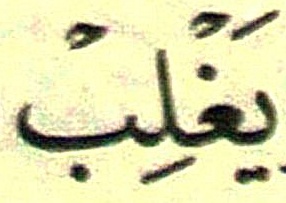 يَغْلِبْ